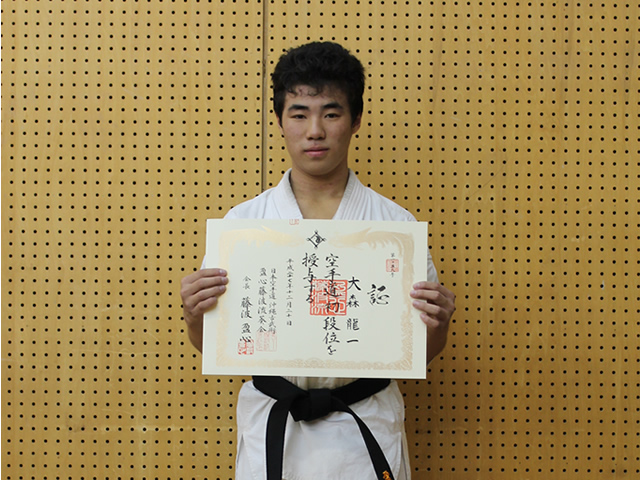 証
大森龍一
空手道初段位を
授与する
平成二七年十二月二十日
日本空手道 沖縄古武術
盈心藤波流茶会
会長 藤波盈心